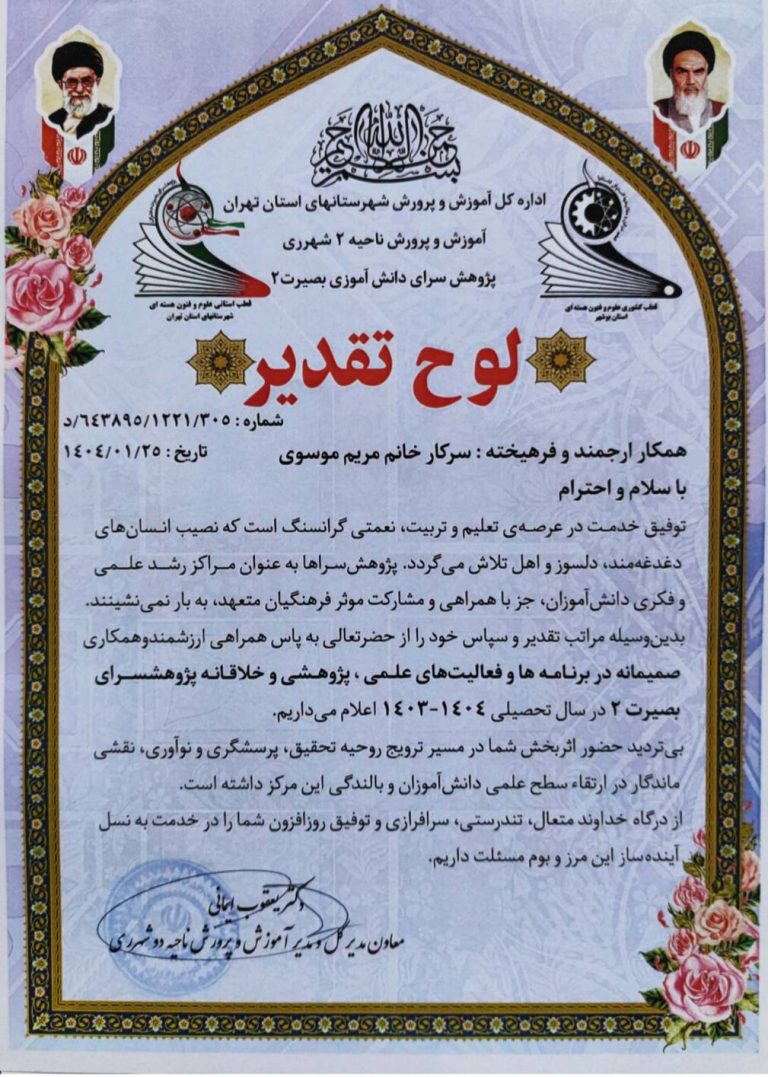 بسم الله الرحمن الرحیم
اداره کل آموزش و پرورش شهرستانهای استان تهران
آموزش و پرورش ناحیه ۲ شهرری
پژوهش سرای دانش آموزی بصیرت۲
قطب کشوری علوم و فنون هسته ای
استان بوشهر
قطب استانی علوم و فنون هسته ای
شهرستانهای استان تهران
لوح تقدیر
شماره : ۶۴۳۸۹۵/۱۲۲۱/۳۰۵/د
همکار ارجمند و فرهیخته : سرکار خانم مریم موسوی
تاریخ : ۱۴۰۴/۰۱/۲۵
با سلام و احترام
توفیق خدمت در عرصه‌ی تعلیم و تربیت، نعمتی گرانسنگ است که نصیب انسان‌های
دغدغه‌مند، دلسوز و اهل تلاش می‌گردد. پژوهش‌سراها به عنوان مراکز رشد علمی
و فکری دانش‌آموزان، جز با همراهی و مشارکت موثر فرهنگیان متعهد، به بار نمی‌نشینند.
بدین‌وسیله مراتب تقدیر و سپاس خود را از حضرتعالی به پاس همراهی ارزشمندوهمکاری
صمیمانه در برنامه ها و فعالیت‌های علمی ، پژوهشی و خلاقانه پژوهشسرای
بصیرت ۲ در سال تحصیلی ۱۴۰۴-۱۴۰۳ اعلام می‌داریم.
بی‌تردید حضور اثربخش شما در مسیر ترویج روحیه تحقیق، پرسشگری و نوآوری، نقشی
ماندگار در ارتقاء سطح علمی دانش‌آموزان و بالندگی این مرکز داشته است.
از درگاه خداوند متعال، تندرستی، سرافرازی و توفیق روزافزون شما را در خدمت به نسل
آینده‌ساز این مرز و بوم مسئلت داریم.
دکتر یعقوب ایمانی
معاون مدیر کل و مدیر آموزش و پرورش ناحیه دو شهرری